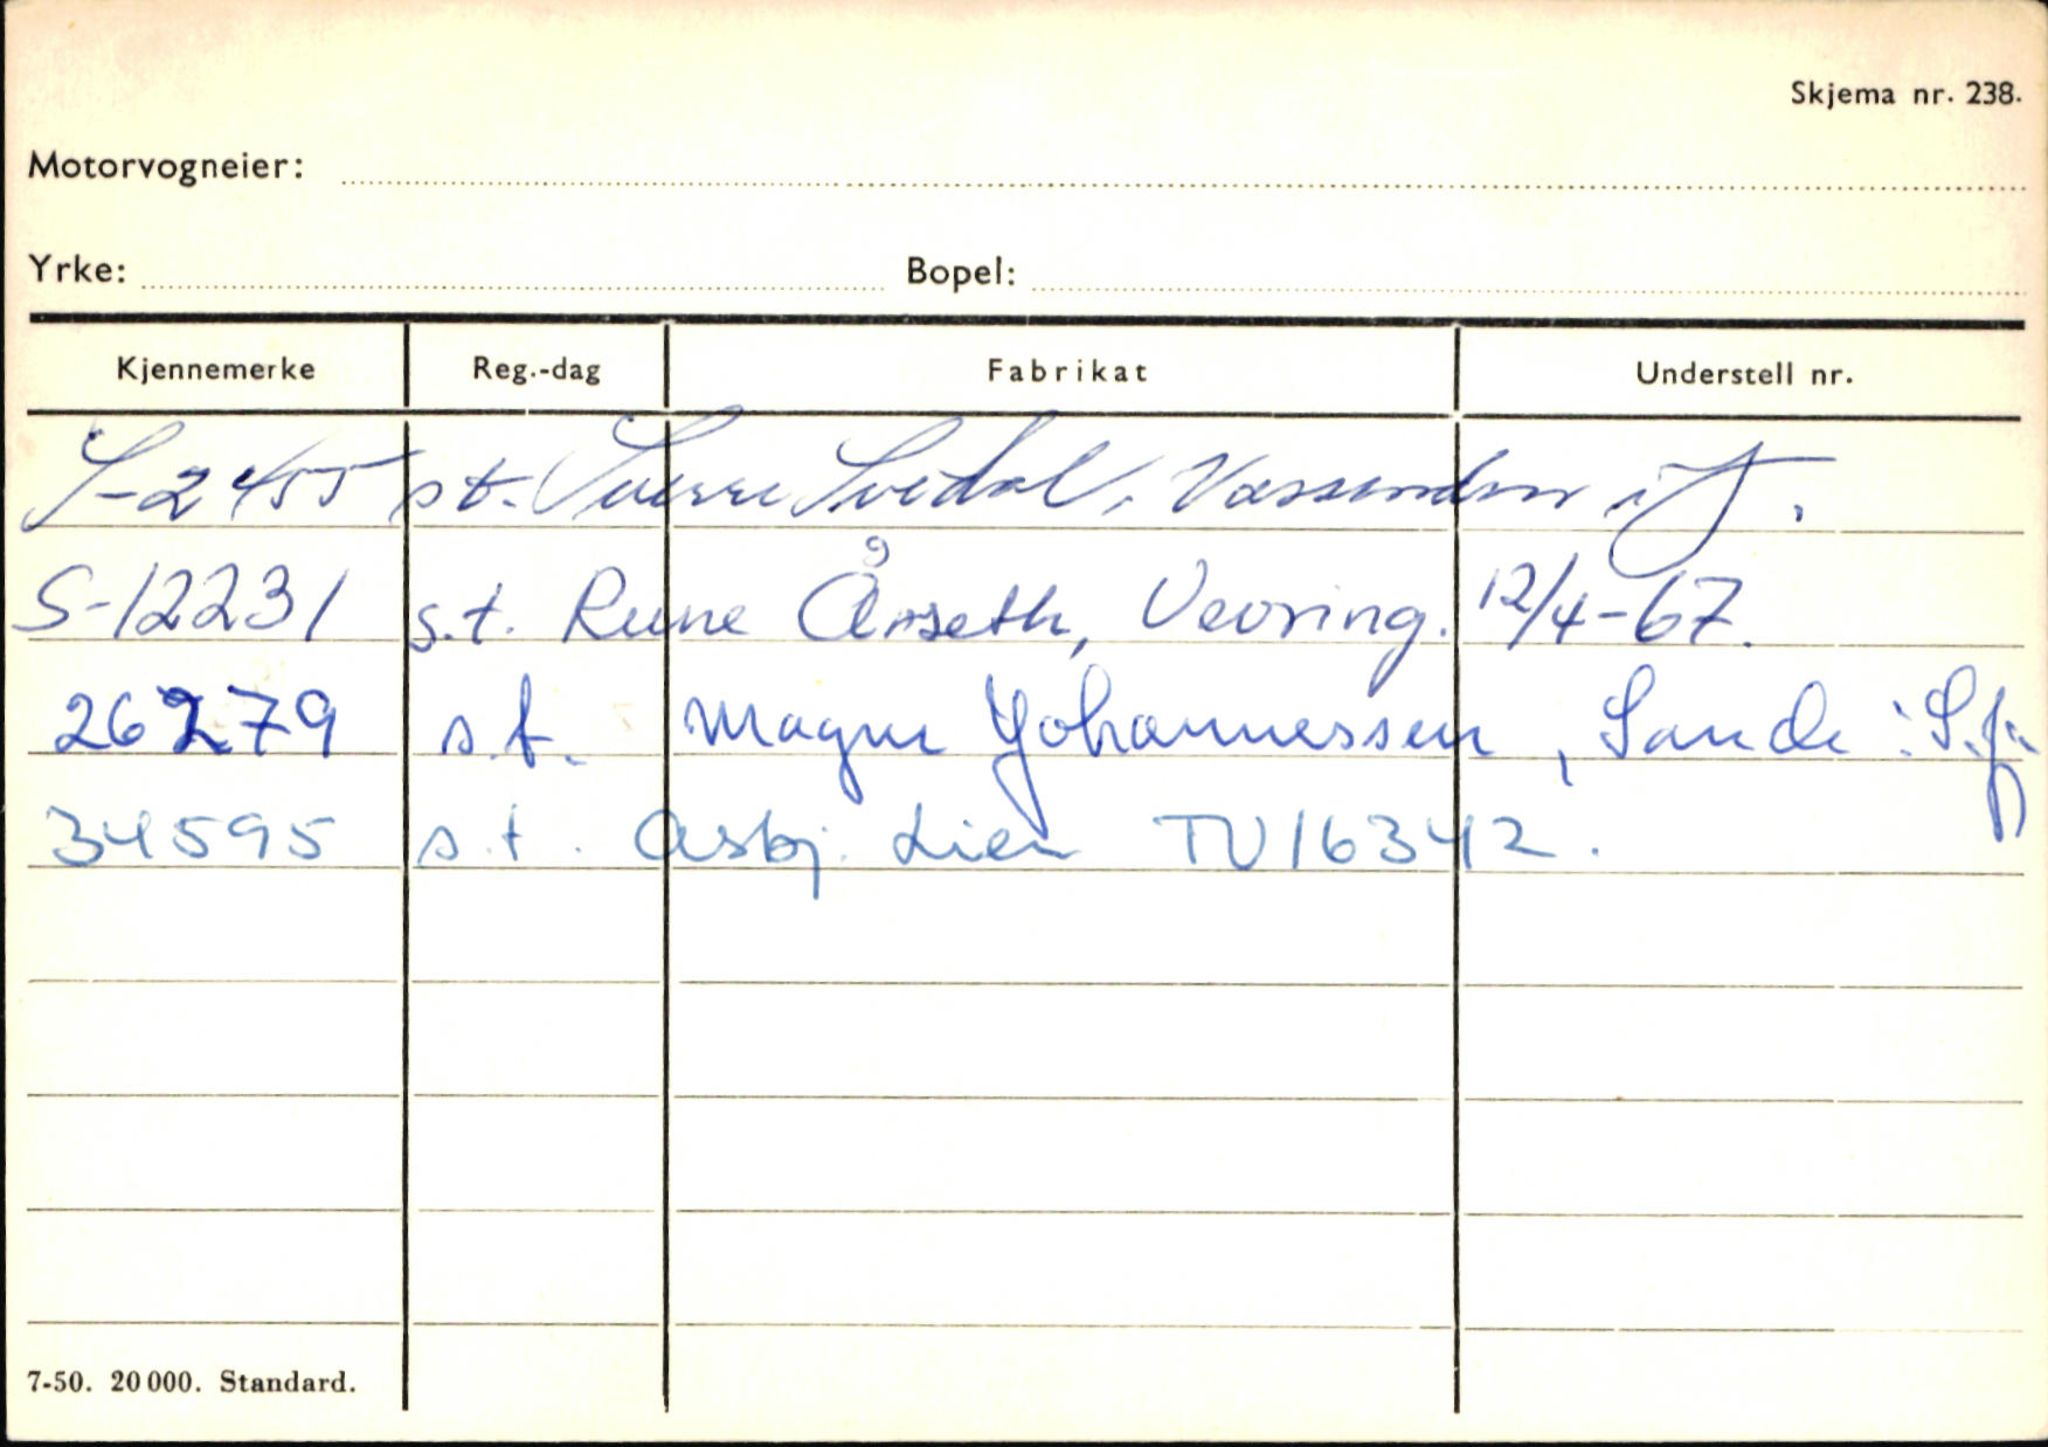 Skjema nr. 238.
Motorvogneier:
Yrke: Bopel:
Kjennemerke Reg.-dag Fabrikat Understell nr.
S-2455 st. Sverre Svidal, Vassenden i J.
S-12231 s.t. Rune Årseth, Vevring. 12/4-67.
26279 s.t. Magne Johannessen, Sande i S.fj.
34595 s.t. Asbj. Lien TU16342.
7-50. 20 000. Standard.